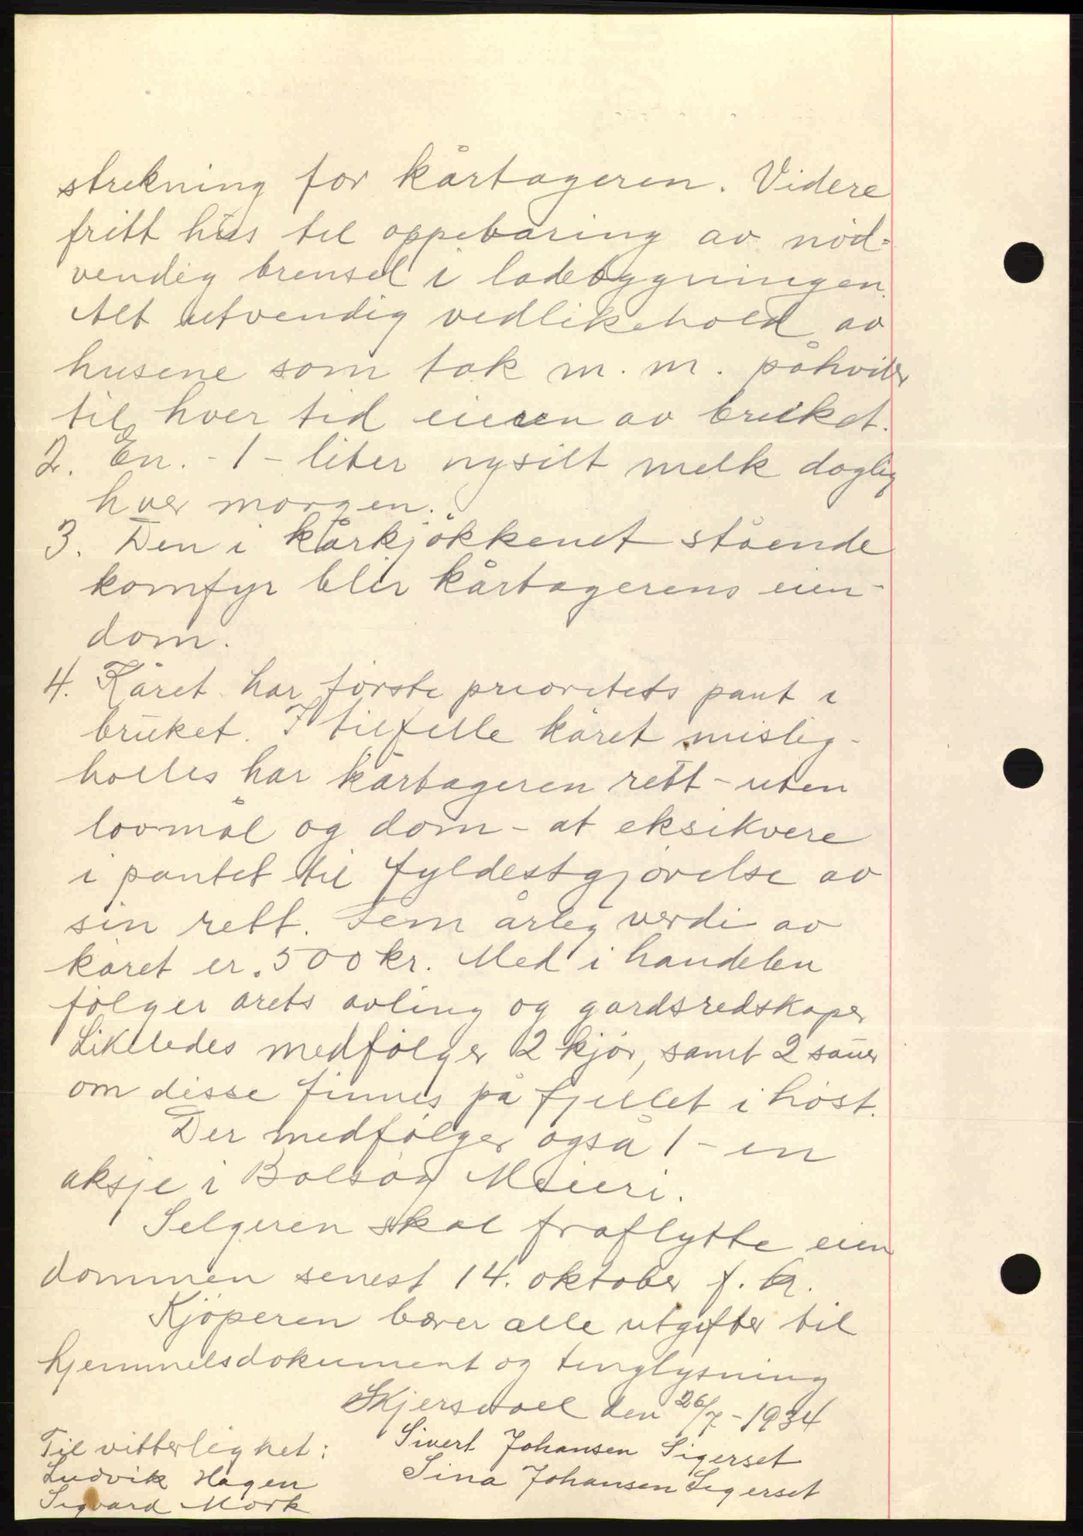 strekning for kårtageren. Videre
fritt hus til oppebaring av nød-
vendig brensel i ladebygningen.
Alt utvendig vedlikehold av
husene som tak m. m. påhviler
til hver tid eieren av bruket.
2. En. - 1 - liter nysilt melk daglig
hver morgen.
3. Den i kårkjökkenet stående
komfyr blir kårtagerens eien-
dom.
4. Kåret har første prioritets pant i
bruket. I tilfelle kåret mislig-
holles har kårtageren rett - uten
lovmål og dom - at eksikvere
i pantet til fyldestgjørelse av
sin rett. Fem årlig verdi av
kåret er 500 kr. Med i handelen
følger årets avling og gardsredskaper
Likeledes medfølger 2 kjør, samt 2 sauer
om disse finnes på fjellet i høst.
Der medfølger også 1 - en
aksje i Bolsøy Meieri.
Selgeren skal fraflytte eien
dommen senest 14. oktober f. k.
Kjøperen bærer alle utgifter til
hjemmelsdokument og tinglysning
den 26/7 - 1934
Til vitterlighet: Sivert Johansen Sigerset
Ludvik Hagen Sina Johansen Sigerset
Sigvard Mork